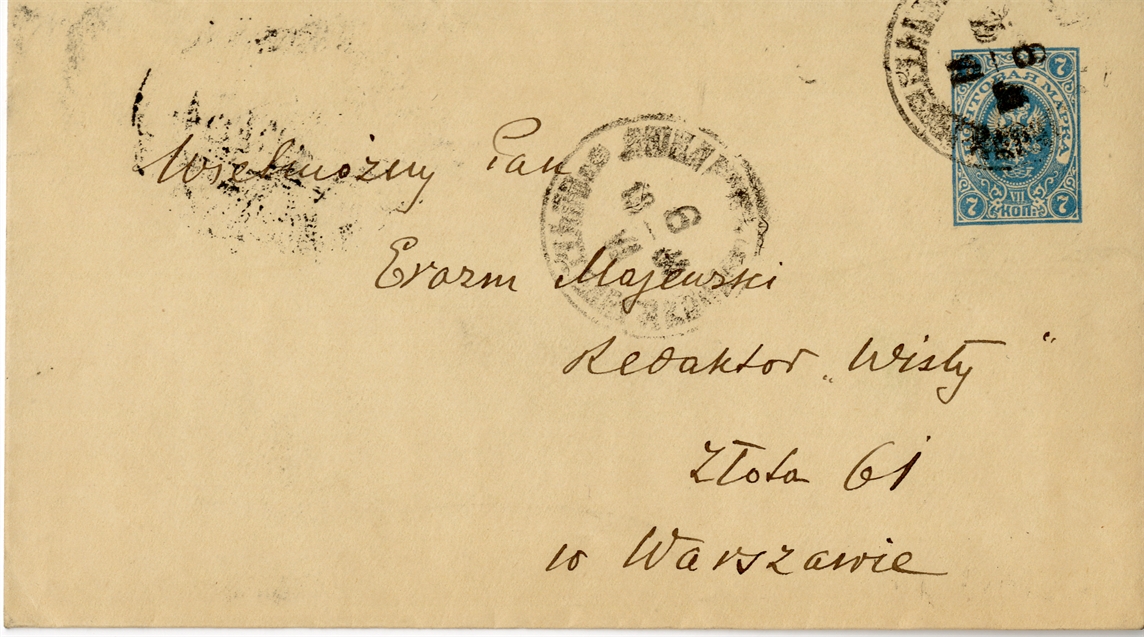 7 7
ПОЧТОВАЯ МАРКА
VII
7 КОП. 7
Wielmożny Pan
Erazm Majewski
Redaktor „Wisły"
Złota 61
w Warszawie